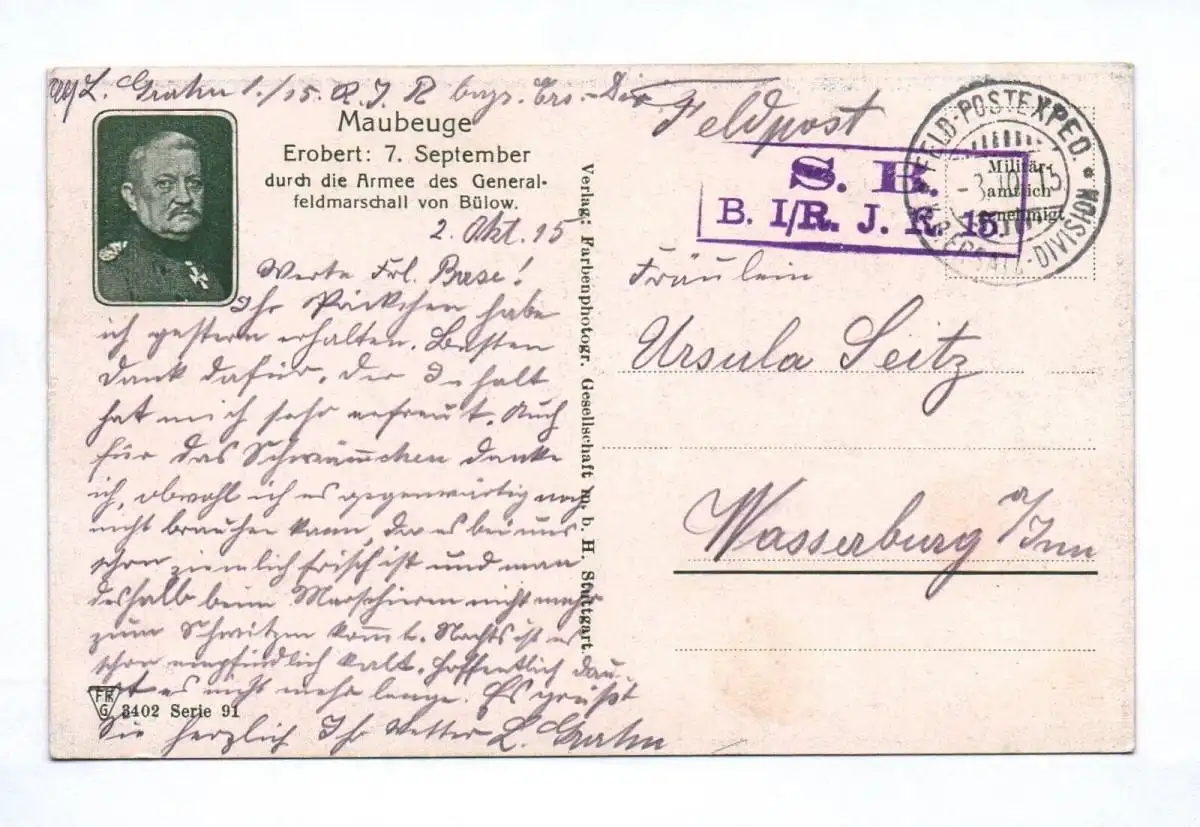 L. Grahn 1./15. R. J. R bayr. Ers.-Div
Maubeuge
Erobert: 7. September
durch die Armee des General-
feldmarschall von Bülow.
2. Okt. 15
Werte Frl. Base!
Ihr Päckchen habe
ich gestern erhalten. Besten
Dank dafür. Der Inhalt
hat mich sehr erfreut. Auch
für das Schwämmchen danke
ich, obwohl ich es gegenwärtig noch
nicht brauchen kann, da es bei uns
schon ziemlich frisch ist und man
deshalb beim Marschieren nicht mehr
zum Schwitzen kommt. Nachts ist es
schon empfindlich kalt. Hoffentlich dau-
ert es nicht mehr lange. Es grüßt
Sie herzlich Ihr Vetter L. Grahn
FPG
3402 Serie 91
Verlag: Farbenphotogr. Gesellschaft m. b. H. Stuttgart.
Feldpost
S. B.
B. I/R. J. R. 15.
FELD-POSTEXPED.
-3.10.15
DIVISION
Militär-
amtlich
genehmigt
Fräulein
Ursula Seitz
Wasserburg a/Inn